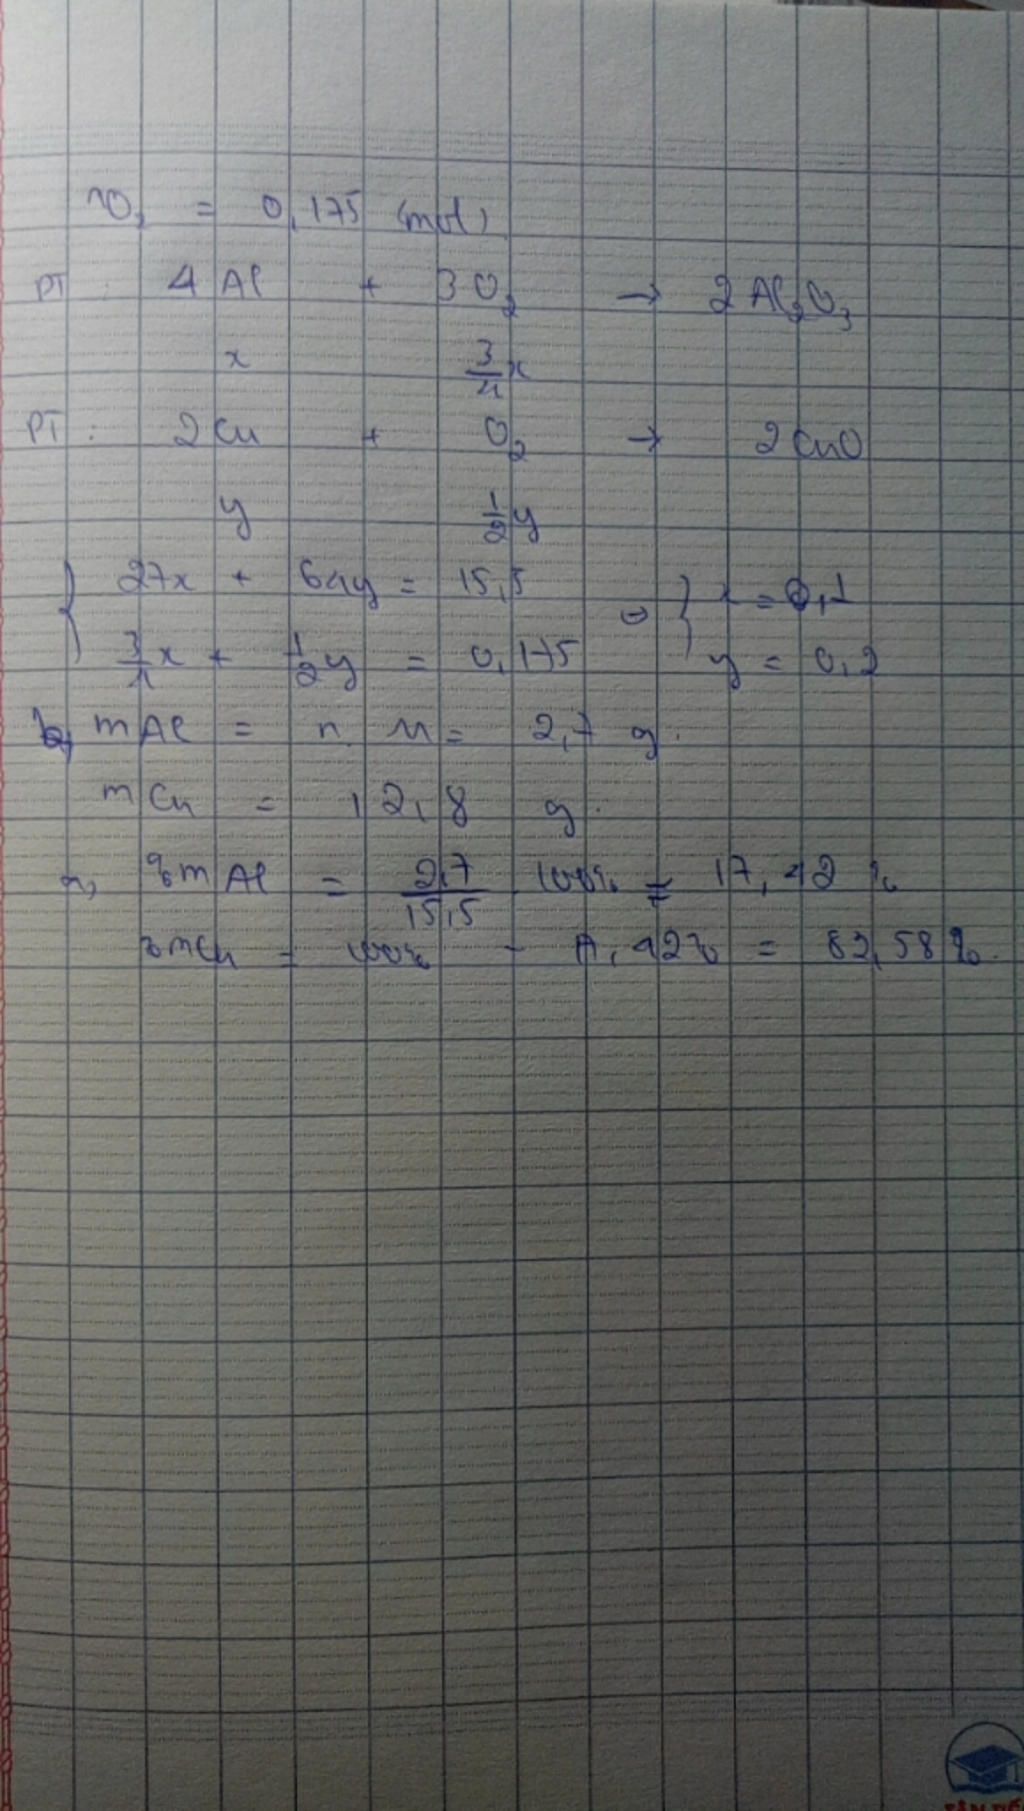 nO₂ = 0,175 (mol)
PT: 4Al + 3O₂ → 2Al₂O₃
x 3/4x
PT: 2Cu + O₂ → 2CuO
y 1/2y
{ 27x + 64y = 15,5 ⇔ { x = 0,1
3/4x + 1/2y = 0,175 y = 0,2
b, mAl = n. M = 2,7 g.
mCu = 12,8 g.
a, %mAl = 2,7/15,5 . 100% = 17,42%
%mCu = 100% - 17,42% = 82,58%.